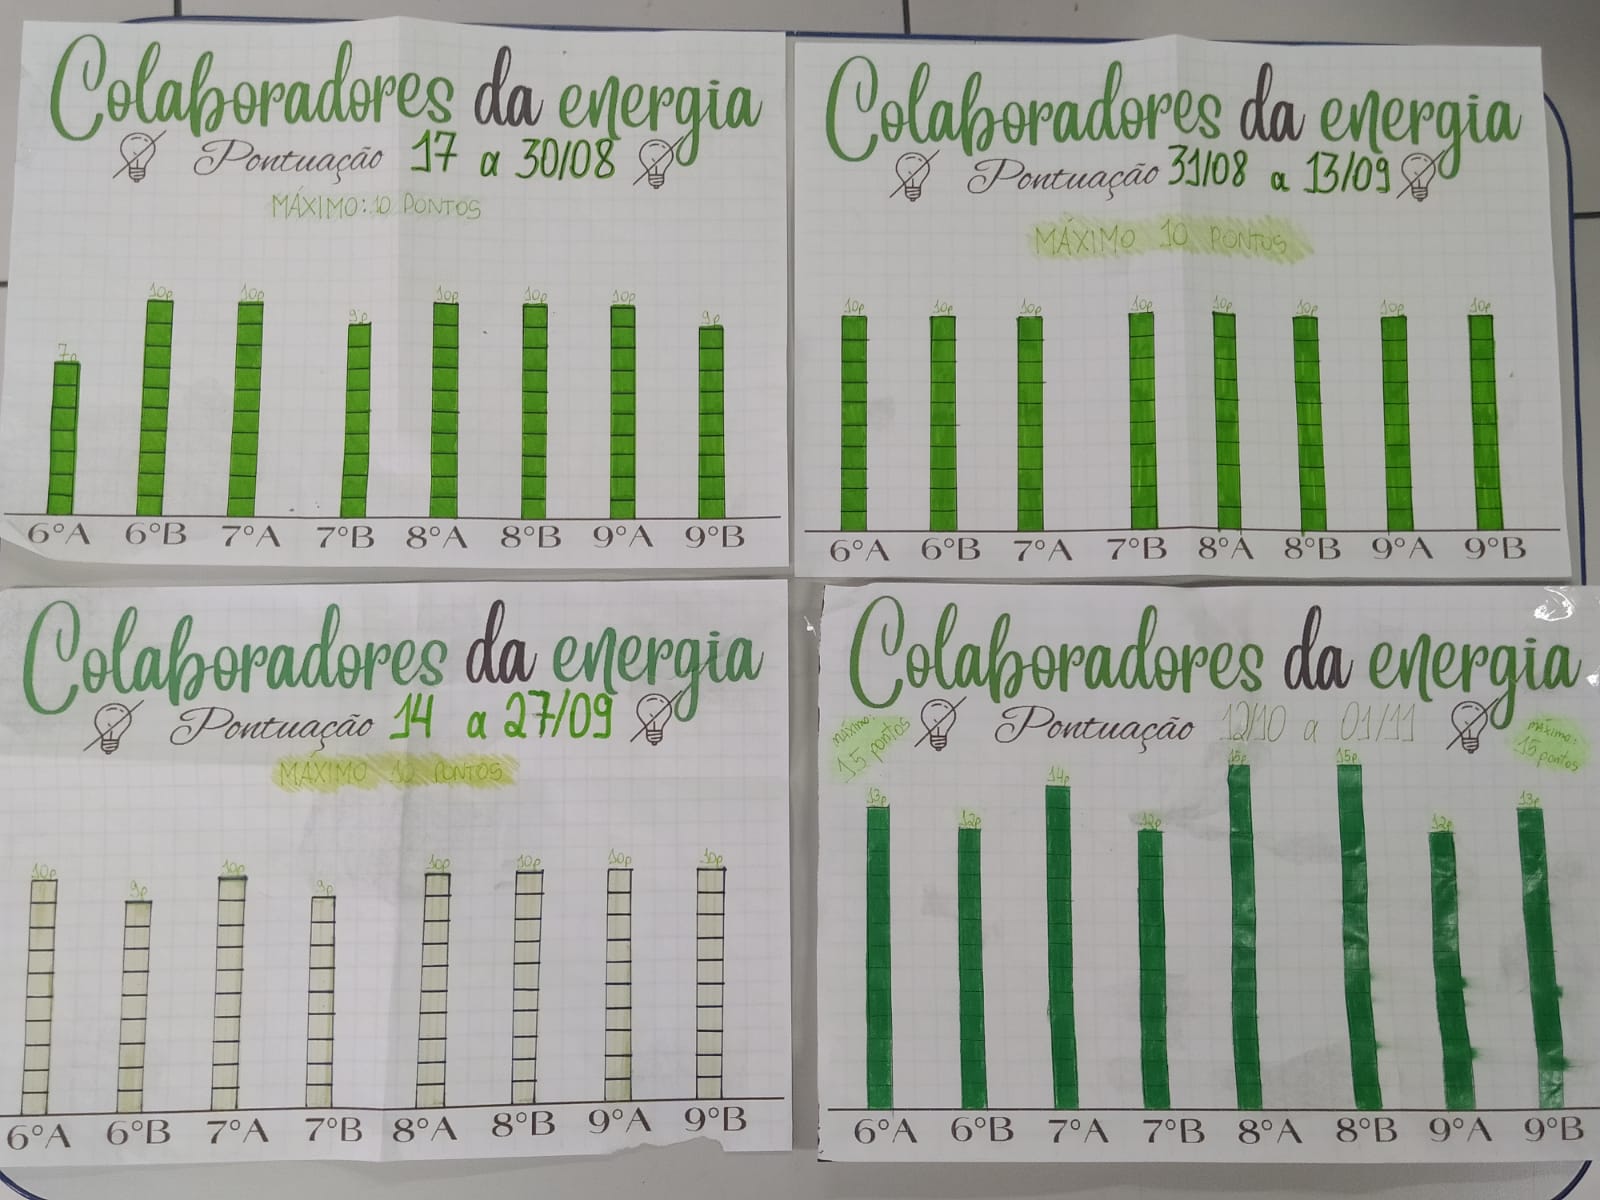 Colaboradores da energia
Pontuação 17 a 30/08
MÁXIMO: 10 PONTOS
7p 10p 10p 9p 10p 10p 10p 9p
6°A 6°B 7°A 7°B 8°A 8°B 9°A 9°B
Colaboradores da energia
Pontuação 31/08 a 13/09
MÁXIMO 10 PONTOS
10p 10p 10p 10p 10p 10p 10p 10p
6°A 6°B 7°A 7°B 8°A 8°B 9°A 9°B
Colaboradores da energia
Pontuação 14 a 27/09
MÁXIMO 10 PONTOS
10p 9p 10p 9p 10p 10p 10p 10p
6°A 6°B 7°A 7°B 8°A 8°B 9°A 9°B
Colaboradores da energia
Pontuação 12/10 a 01/11
máximo:
15 pontos
máximo:
15 pontos
13p 12p 14p 12p 15p 15p 12p 13p
6°A 6°B 7°A 7°B 8°A 8°B 9°A 9°B